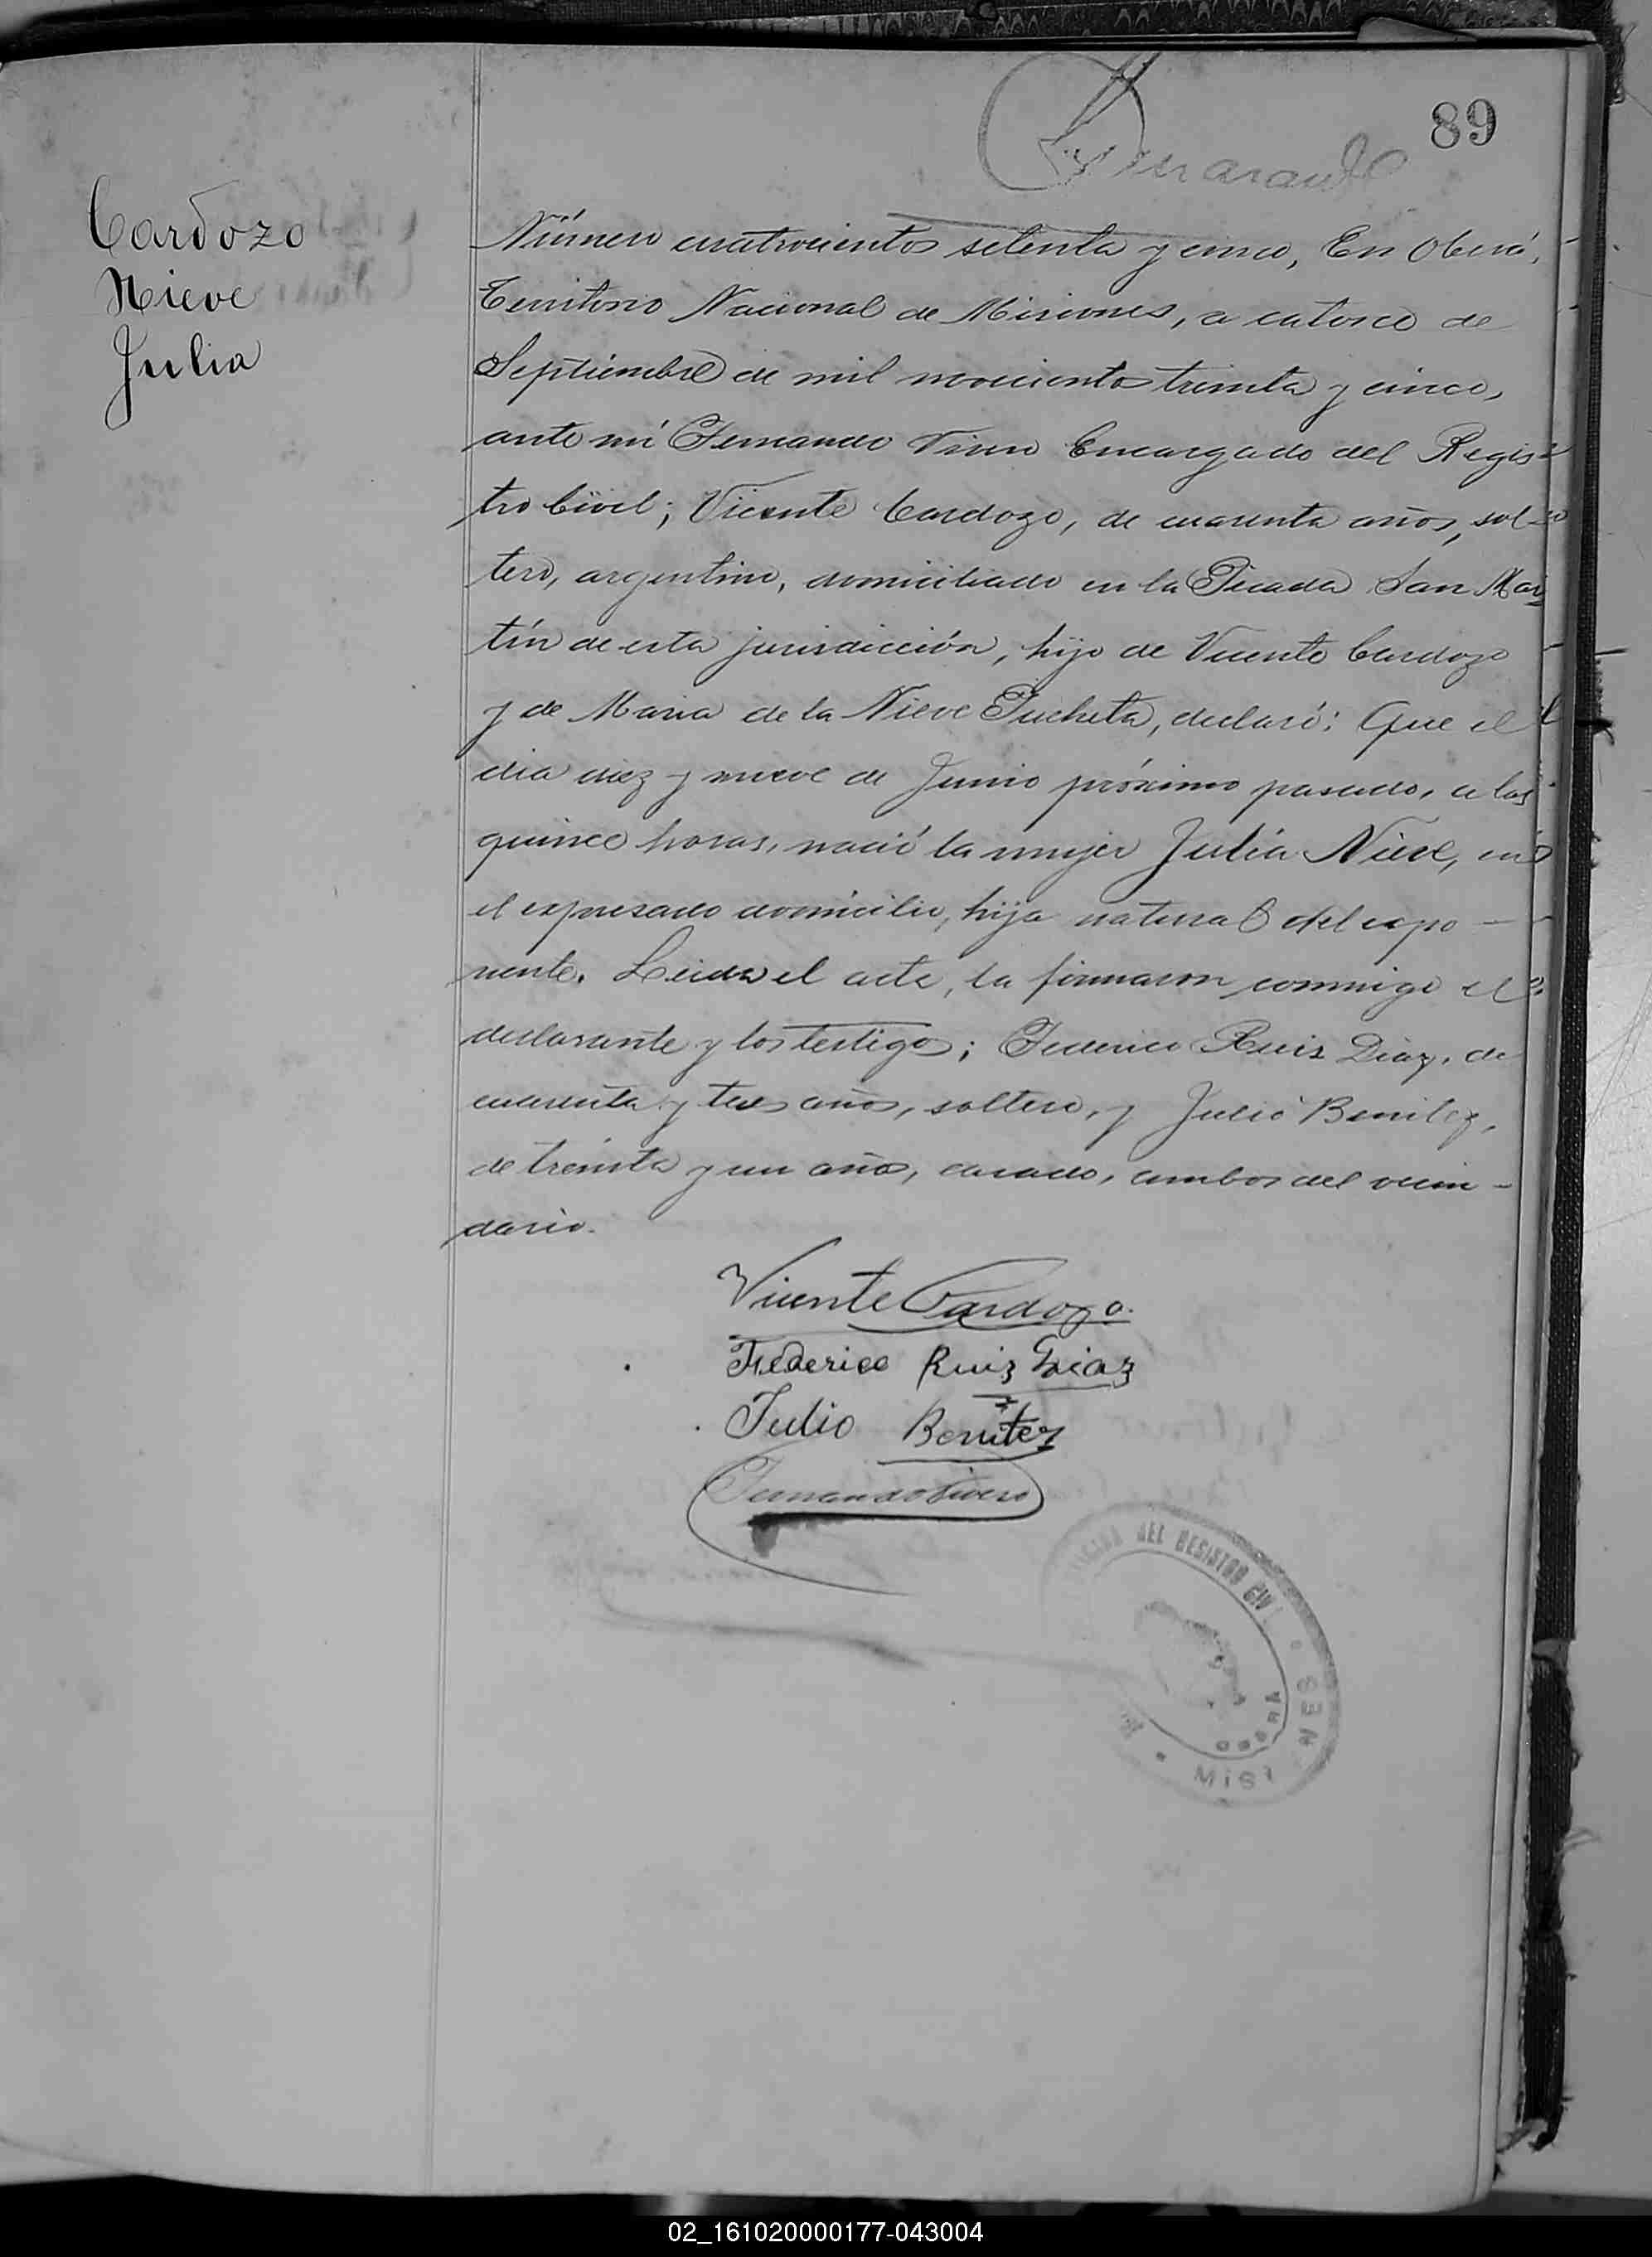 89
Cardozo
Nieve
Julia
Número cuatrocientos setenta y cinco, En Oberá,
Territorio Nacional de Misiones, a catorce de
Septiembre de mil novecientos treinta y cinco,
ante mí Fernando Encargado del Regis-
tro Civil; Vicente Cardozo, de cuarenta años, sol-
tero, argentino, domiciliado en la Picada San Mar-
tín de esta jurisdicción, hijo de Vicente Cardozo
y de Maria de la Nieve Pucheta, declaró: Que el
dia diez y nueve de Junio próximo pasado, a las
quince horas, nació la mujer Julia Nieve, en
el expresado domicilio, hija natural del expo-
nente. Leida el acta, la firmaron conmigo el
declarante y los testigos; Federico Ruis Diaz, de
cuarenta y tres años, soltero, y Julio Benitez,
de treinta y un años, casado, ambos del vecin-
dario.
Vicente Cardozo.
Federico Ruiz Diaz
Julio Benitez
Fernando
DEL REGISTRO CIVIL
OBERA
MISIONES
02_161020000177-043004